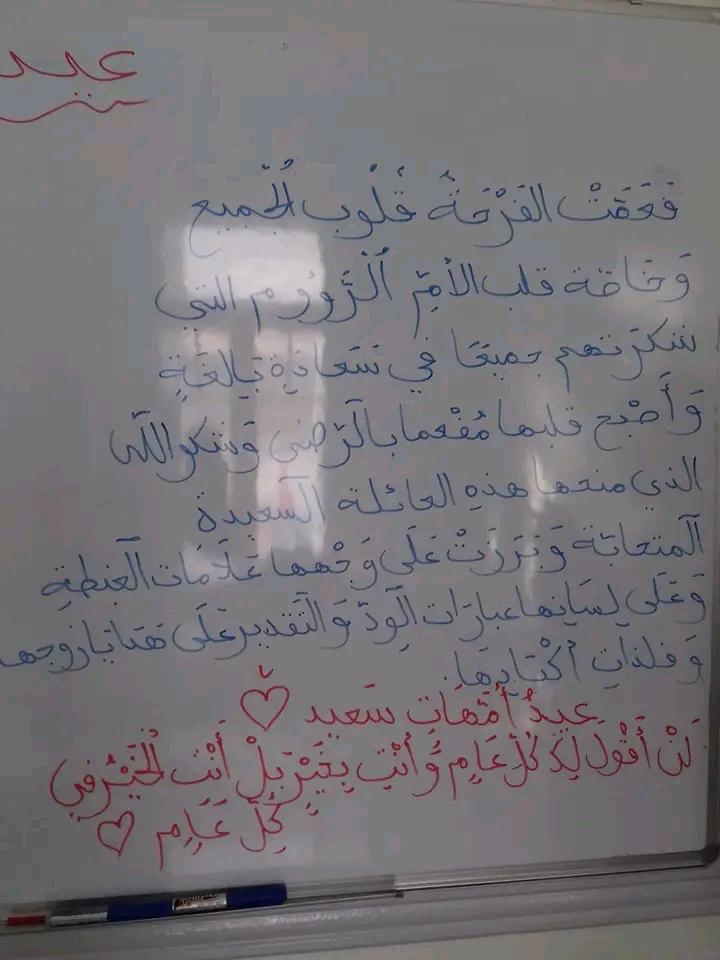 عيد
فَعَمَتْ الفَرْحَةُ قُلُوب الجَميع
وَخَاصّة قلب الأمّ الرَّؤوم التي
شكرتهم جميعًا في سَعَادَةٍ بَالِغَةٍ
وَأَصْبح قلبها مُفْعما بالرّضى وَشكر اللّه
الذي منحها هذه العائلة السّعيدة
المتحابّة وَبَرَزَتْ عَلَى وَجْهها عَلَامَات الغبطةِ
وَعَلَى لِسَانِها عبارَات الوِدّ وَالتّقدير عَلَى هَدَايَا زوجها
وَفلذاتِ أَكْبَادِهَا.
عِيدُ أُمَّهَاتٍ سَعِيد ♡
لَنْ أَقُولَ لَكِ كُلُّ عَامٍ وَأَنْتِ بِخَيْرٍ بَلْ أَنْتِ الخَيْرُ فِي
كُلِّ عَامٍ ♡